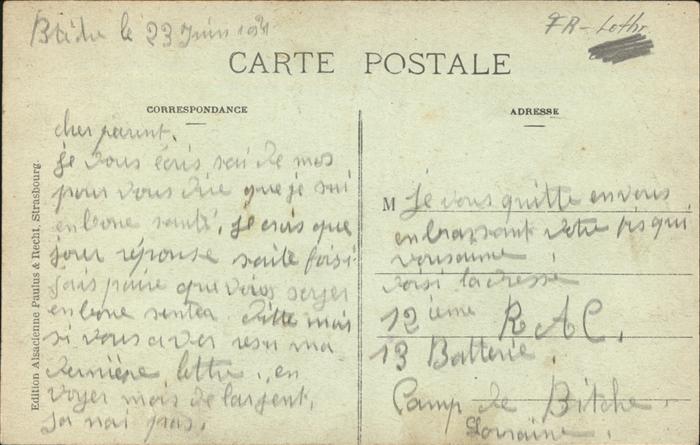 Bitche le 23 Juin 1921
FR - Lothr
CARTE POSTALE
CORRESPONDANCE
ADRESSE
Edition Alsacienne Paulus & Recht, Strasbourg.
cher parent.
Je vous écris sai de mos
pour vous dire que je sui
en bone santé, je crois que
jour réponse saite foisi
j'ais paire que vous seryer
en bone senter ditte mois
si vous aver resu ma
dernière lettre, en
voyer mois de l'argent,
jan nai pas.
M Je vous quitte en vous
enbrassant votre fis qui
vousaime
voisi ladresse
12 ième RAC.
13 Batterie.
Camp de Bitche.
Lorraine.